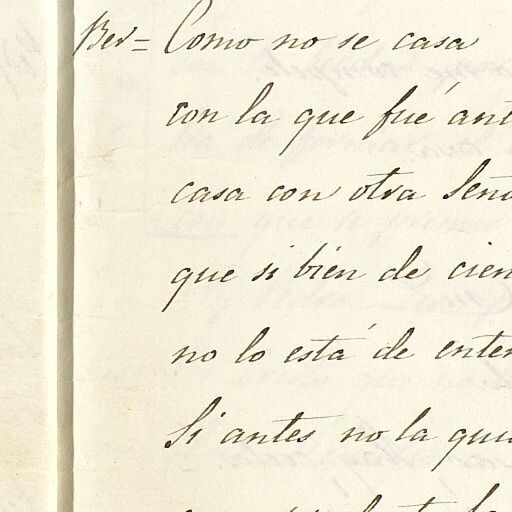 Ber= Como no se casa
con la que fué ant
casa con otra Seño
que si bién de cien
no lo está de enter
Si antes no la qui